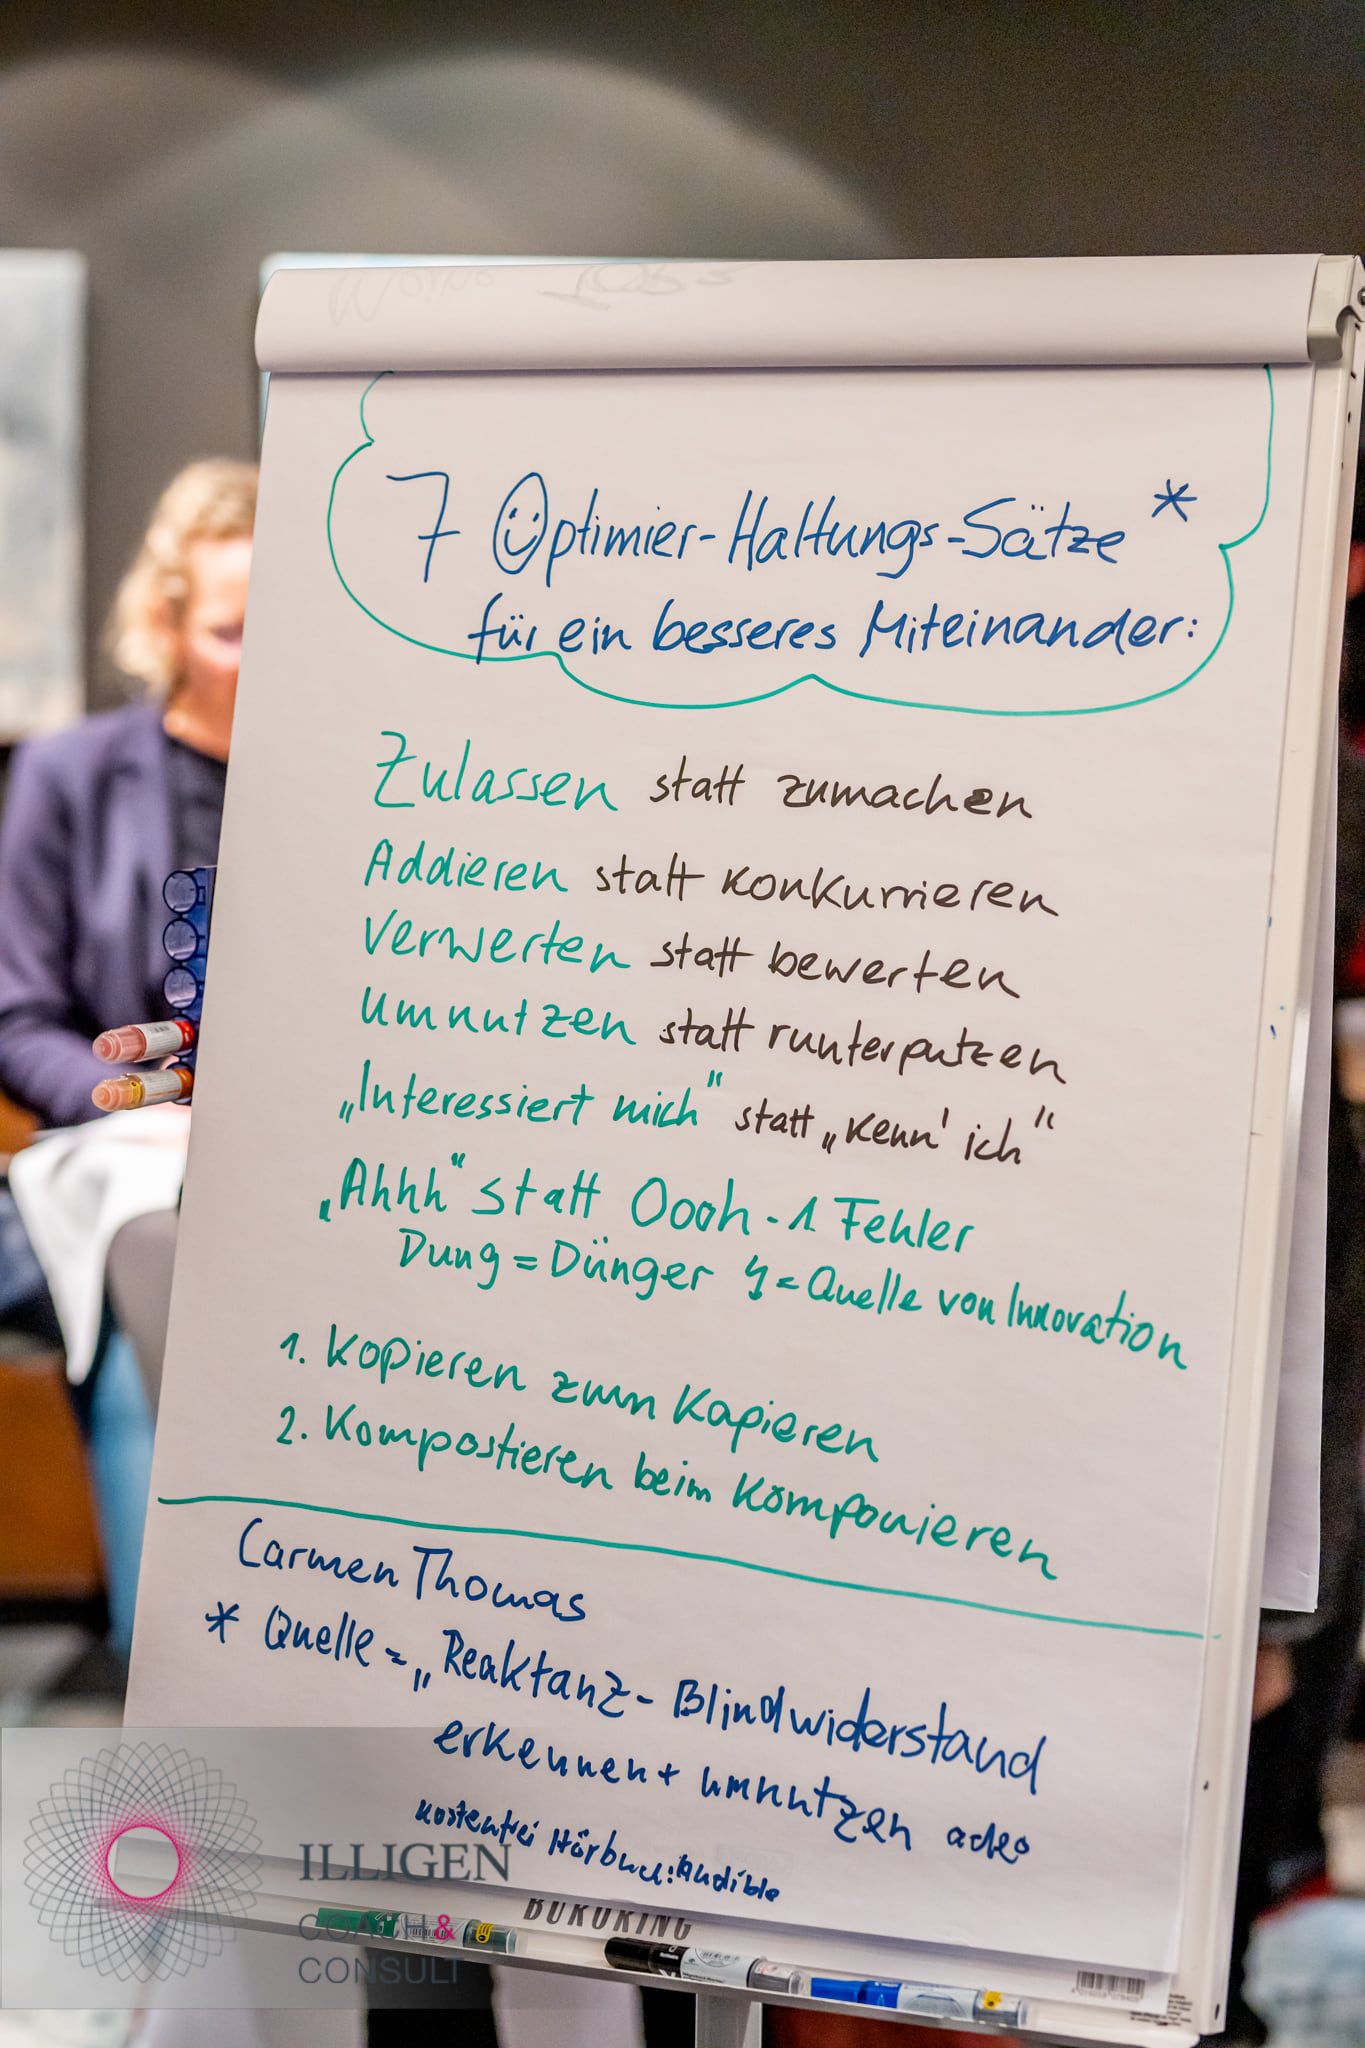 7 Optimier-Haltungs-Sätze *
für ein besseres Miteinander:
Zulassen statt zumachen
Addieren statt konkurrieren
Verwerten statt bewerten
Umnutzen statt runterputzen
„Interessiert mich" statt „Kenn' ich"
„Ahhh" statt Oooh - 1 Fehler
Dung = Dünger = Quelle von Innovation
1. Kopieren zum Kapieren
2. Kompostieren beim Komponieren
Carmen Thomas
* Quelle = „Reaktanz - Blindwiderstand
erkennen + umnutzen
kostenfrei Hörbuch: Audible
ILLIGEN
COACH &
CONSULT